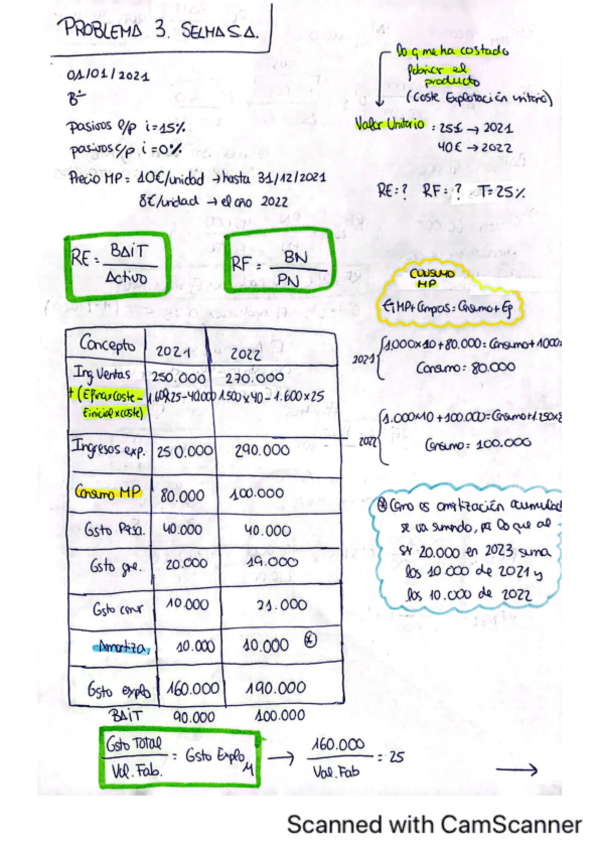 PROBLEMA 3. SELMASA.
01/01/2021
Bº
pasivos l/p i=15%
pasivos c/p i=0%
Precio MP = 10€/unidad → hasta 31/12/2021
8€/unidad → el año 2022
lo q me ha costado
fabricar el
producto
(Coste Explotación unitario)
Valor Unitario = 25€ → 2021
40€ → 2022
RE=? RF=? T=25%
RE = BAiT / Activo
RF = BN / PN
CONSUMO
MP
EiMP + Compras = Consumo + Ef
2021 { 1.000x10 + 80.000 = Consumo + 1000x
Consumo = 80.000
2022 { 1.000x10 + 100.000 = Consumo + 1.250x8
Consumo = 100.000
Concepto 2021 2022
Ing Ventas 250.000 270.000
+ (Efinal x Coste - Einicial x Coste) 1.600x25-40.000 1.500 x 40 - 1.600 x 25
Ingresos exp. 250.000 290.000
Consumo MP 80.000 100.000
Gsto Psa. 40.000 40.000
Gsto gre. 20.000 19.000
Gsto comr 10.000 21.000
Amortiza, 10.000 10.000 (*)
Gsto explo 160.000 190.000
BAiT 90.000 100.000
(*) Como es amortización acumulad
se va sumando, por lo que al
ser 20.000 en 2023 suma
los 10.000 de 2021 y
los 10.000 de 2022
Gsto Total / Vol. Fab. = Gsto Explo M → 160.000 / Vol. Fab = 25
→
Scanned with CamScanner